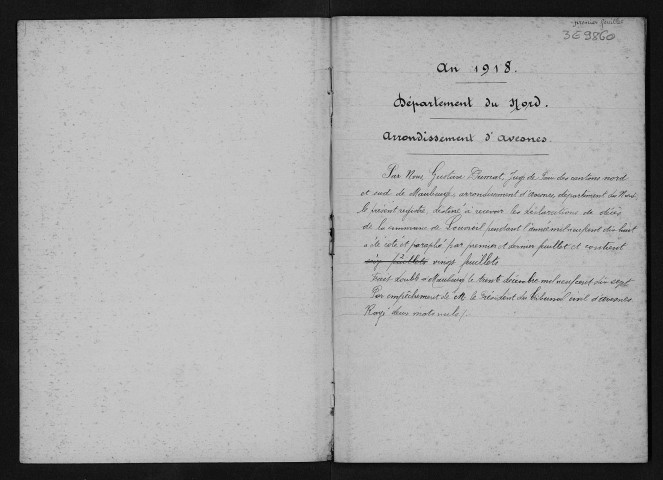 premier feuillet
3E9860
An 1918.
Département du Nord.
Arrondissement d'Avesnes.
Par Nous Gustave Juge de Paix des cantons nord
et sud de Maubeuge arrondissement d'Avesnes, département du Nord,
le présent registre, destiné à recevoir les déclarations de décès
de la commune de Louvroil pendant l'année mil neuf cent dix huit
a été coté et paraphé par premier et dernier feuillet et contient
six feuillets vingt feuillets
Fait double à Maubeuge le trente décembre mil neuf cent dix sept
Par empêchement de M. le Président du Tribunal civil d'Avesnes.
Rayé deux mots nuls /.